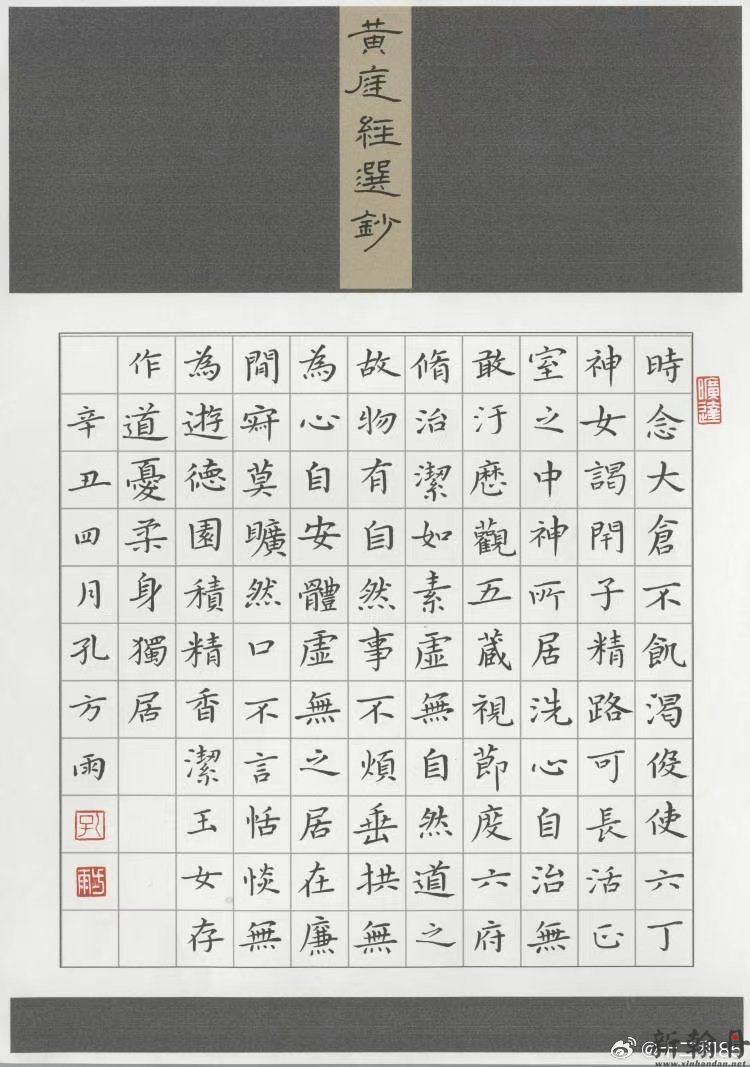 黄庭經選鈔
曠達
時念大倉不飢渴役使六丁
神女謁閇子精路可長活正
室之中神所居洗心自治無
敢汙歷觀五藏視節度六府
脩治潔如素虛無自然道之
故物有自然事不煩垂拱無
為心自安體虛無之居在廉
間寂莫曠然口不言恬惔無
為遊德園積精香潔玉女存
作道憂柔身獨居
辛丑四月孔方雨
孔
方雨
新翰丹
www.xinhandan.net